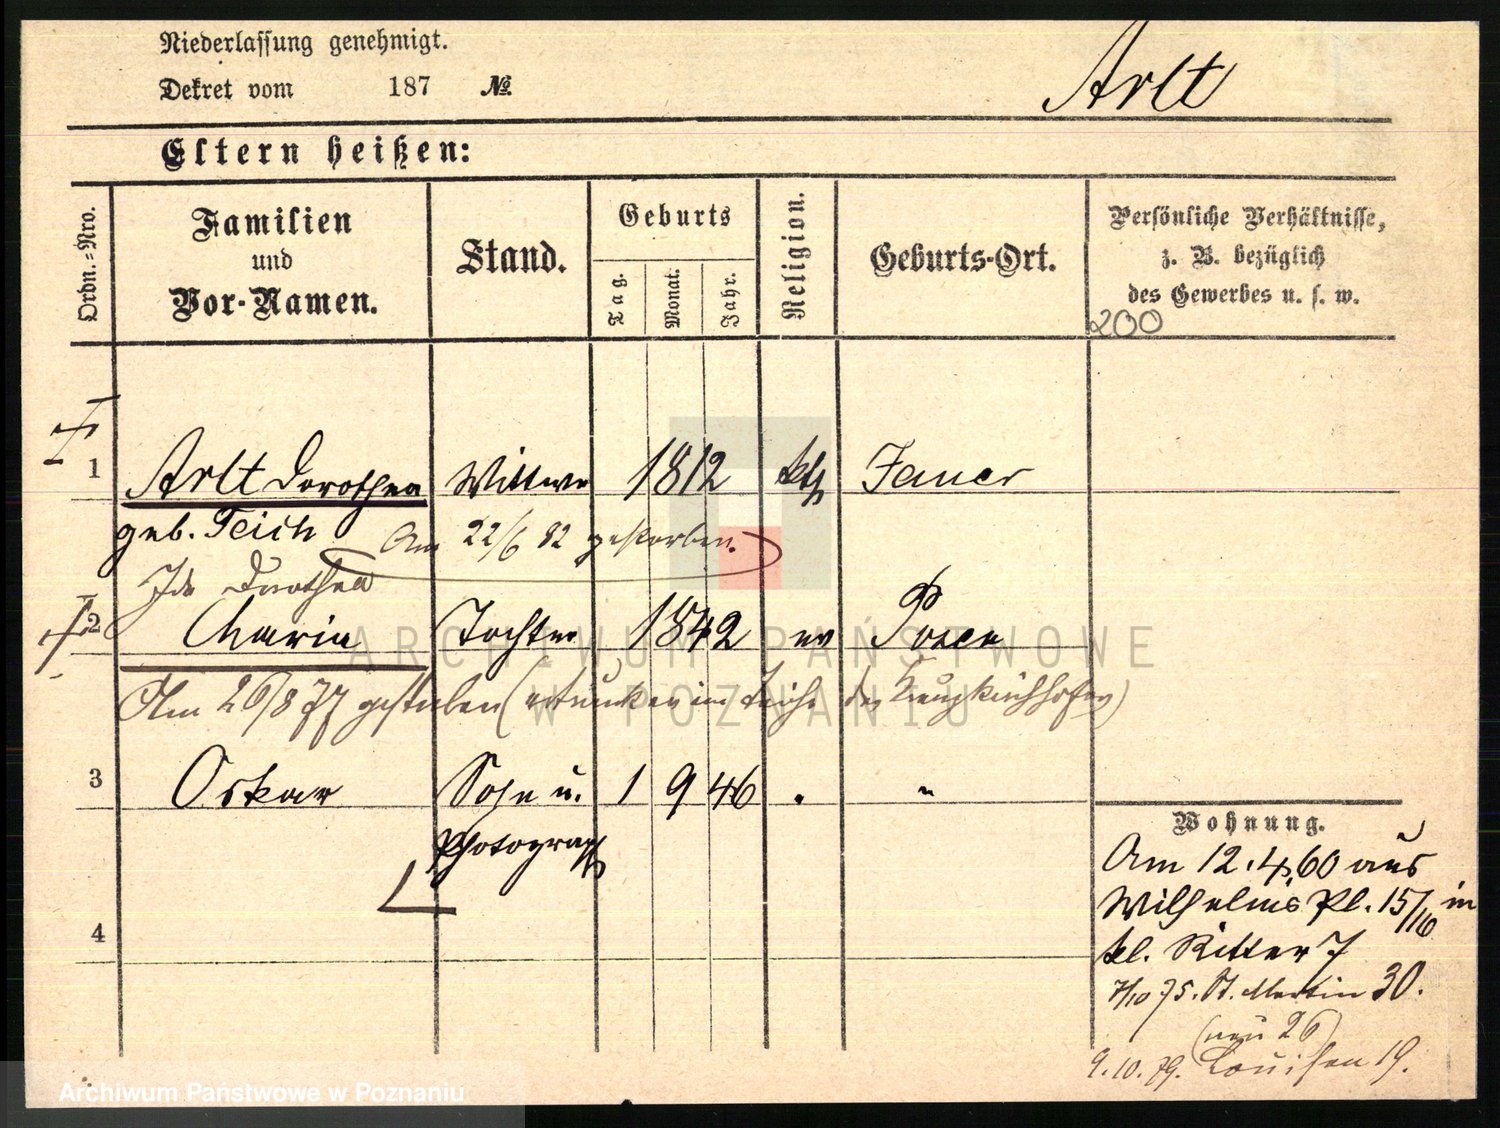 Niederlassung genehmigt.
Dekret vom 187 №.
Arlt
Eltern heißen:
Ordn.=Nro.
Familien
und
Vor-Namen.
Stand.
Geburts
Tag.
Monat.
Jahr.
Religion.
Geburts-Ort.
Persönliche Verhältnisse,
z. B. bezüglich
des Gewerbes u. s. w.
200
1 Arlt Dorothea Wittwe 1812 kth Jauer
geb. Teich Am 22/6 82 gestorben.
Ida Dorothea
2 Maria Tochter 1842 ev Posen
Am 26/8 77 gestorben (ertrunken im Teiche des Kreuzkirchhofes)
3 Oskar Sohn u. 1 9 46 . "
Photograph
4
Wohnung.
Am 12.4.60 aus
Wilhelms Pl. 15/16 in
kl. Ritter 7
7/10 75. St. Martin 30.
(neu 26)
9.10.79. Louisen 19.
ARCHIWUM PAŃSTWOWE
W POZNANIU
Archiwum Państwowe w Poznaniu